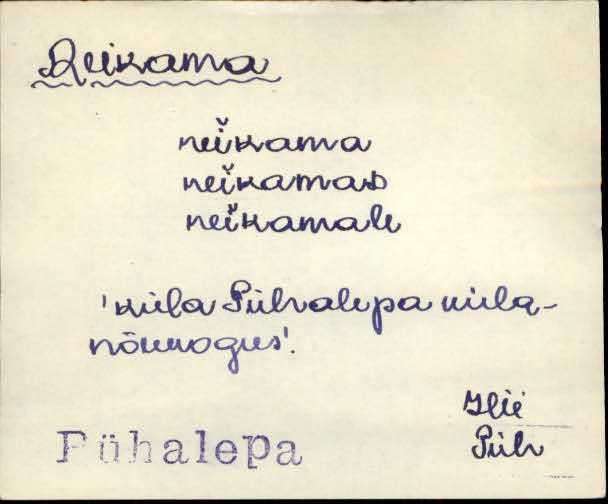 Reikama
reĭkama
reĭkamas
reĭkamale
'küla Pühalepa küla-
nõukogus'.
Hii
Püh
Pühalepa